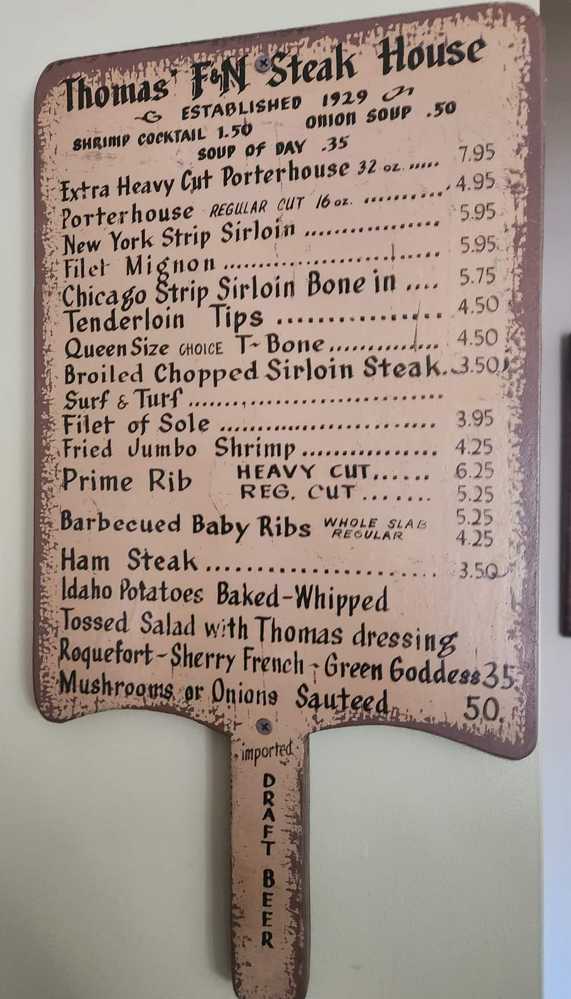 Thomas' F&N Steak House
ESTABLISHED 1929
SHRIMP COCKTAIL 1.50 ONION SOUP .50
SOUP OF DAY .35
Extra Heavy Cut Porterhouse 32 oz. ..... 7.95
Porterhouse REGULAR CUT 16 oz. .......... 4.95
New York Strip Sirloin ................. 5.95
Filet Mignon ........................... 5.95
Chicago Strip Sirloin Bone in .... 5.75
Tenderloin Tips .................... 4.50
Queen Size CHOICE T-Bone.............. 4.50
Broiled Chopped Sirloin Steak..3.50
Surf & Turf ................................
Filet of Sole ............................ 3.95
Fried Jumbo Shrimp ................. 4.25
Prime Rib HEAVY CUT...... 6.25
REG. CUT ....... 5.25
Barbecued Baby Ribs WHOLE SLAB 5.25
REGULAR 4.25
Ham Steak ......................... 3.50
Idaho Potatoes Baked-Whipped
Tossed Salad with Thomas dressing
Roquefort-Sherry French-Green Goddess 35
Mushrooms or Onions Sauteed 50.
imported
DRAFT BEER